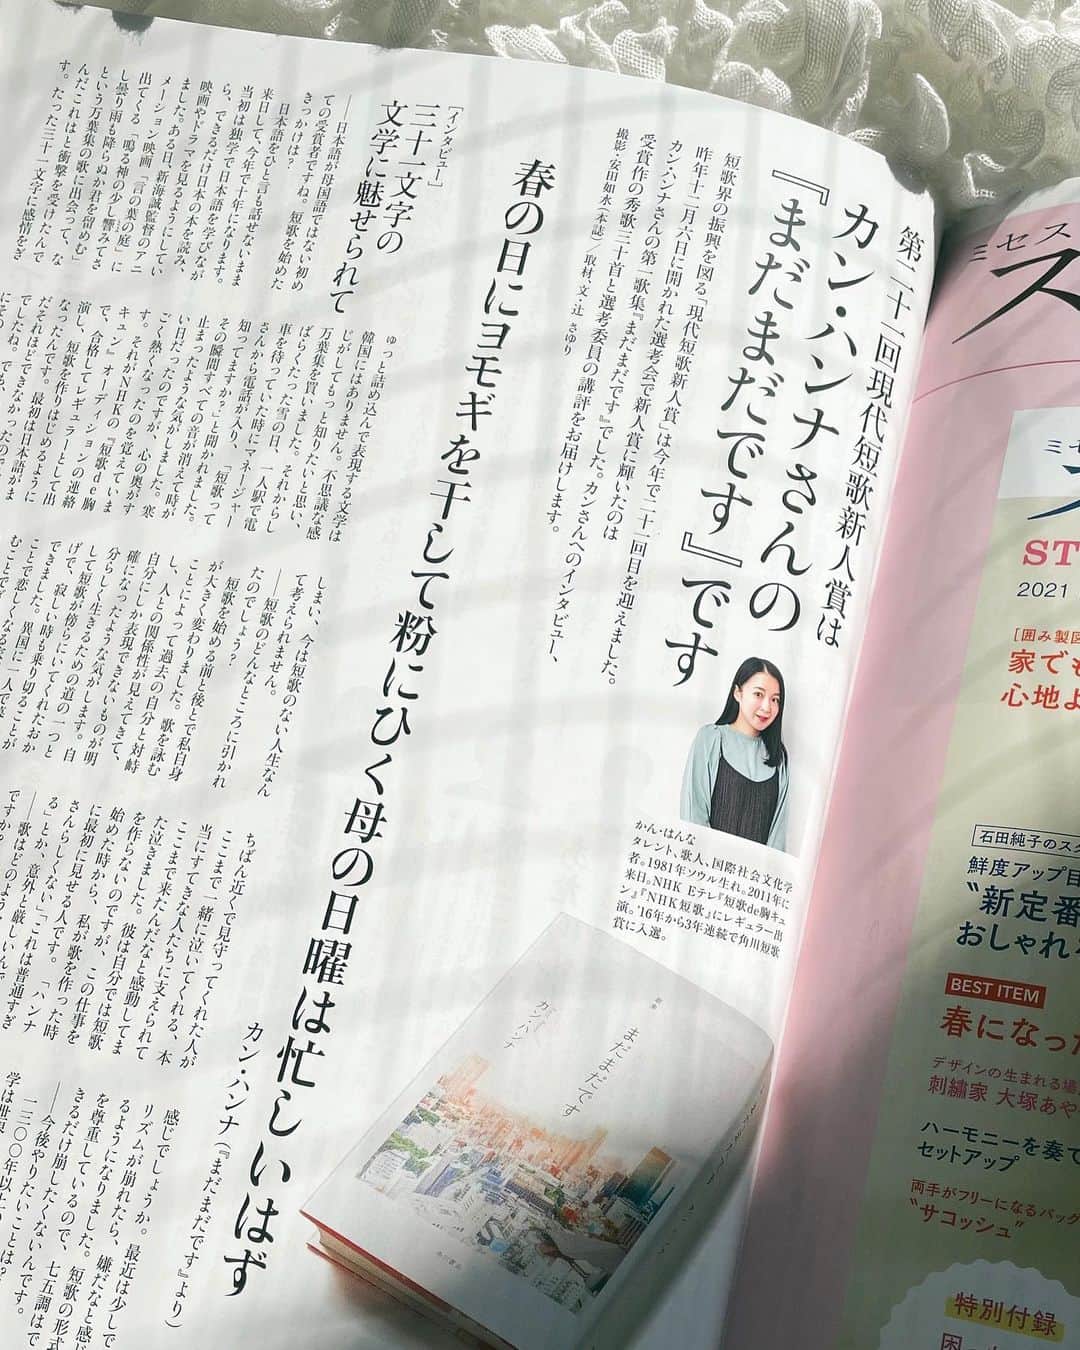 第二十一回現代短歌新人賞は
カン・ハンナさんの
『まだまだです』です
短歌界の振興を図る「現代短歌新人賞」は今年で二十一回目を迎えました。
昨年十二月六日に開かれた選考会で新人賞に輝いたのは
カン・ハンナさんの第一歌集『まだまだです』でした。カンさんへのインタビュー、
受賞作の秀歌三十首と選考委員の講評をお届けします。
撮影・安田如水(本誌)/取材、文・辻 さゆり
かん・はんな
タレント、歌人、国際社会文化学
者。1981年ソウル生れ。2011年に
来日。NHK Eテレ『短歌de胸キュ
ン』『NHK短歌』にレギュラー出
演。'16年から3年連続で角川短歌
賞に入選。
春の日にヨモギを干して粉にひく母の日曜は忙しいはず
カン・ハンナ(『まだまだです』より)
[インタビュー]
三十一文字の
文学に魅せられて
――日本語が母国語ではない初め
ての受賞者ですね。短歌を始めた
きっかけは?
日本語をひと言も話せないまま
来日して、今年で十年になります。
当初は独学で日本語を学びなが
ら、できるだけ日本の本を読み、
映画やドラマを見るようにしてい
ました。ある日、新海誠監督のアニ
メーション映画『言の葉の庭』に
出てくる「鳴る神の少し響みてさ
し曇り雨も降らぬか君を留めむ」
という万葉集の歌に出会って、な
んだこれはと衝撃を受けたんで
す。たった三十一文字に感情をぎ
ゅっと詰め込んで表現する文学は
韓国にはありません。不思議な感
じがしてもっと知りたいと思い、
万葉集を買いました。それからし
ばらくたった雪の日、一人駅で電
車を待っていた時にマネージャー
さんから電話が入り、「短歌って
知ってますか?」と聞かれました。
その瞬間すべての音が消えて時が
止まったような気がしました。寒
い日だったのですが、心の奥がす
ごく熱くなったのを覚えていま
す。それがNHKの『短歌de胸
キュン』オーディションの連絡
で、合格してレギュラーとして出
演し、短歌を作りはじめるように
なったんです。最初は日本語がま
だそれほどできなかったので
でしたね。でも、
しまい、今は短歌のない人生なん
て考えられません。
――短歌のどんなところに引かれ
たのでしょう?
短歌を始める前と後とで私自身
が大きく変わりました。歌を詠む
ことによって過去の自分と対峙
し、人との関係性が見えてきて、
自分にしか表現できないものが明
確になったような気がします。自
分らしく生きるための道の一つと
して短歌が傍らにいてくれたおか
げで、寂しい時も乗り切ることが
できました。異国に一人で
ことで恋しくなる
ちばん近くで見守ってくれた人が
ここまで一緒に泣いてくれる、本
当にすてきな人たちに支えられて
ここまで来たんだなと感動してま
た泣きました。彼は自分では短歌
を作らないのですが、この仕事を
始めた時から、私が歌を作った時
に最初に見せる人です。「ハンナ
さんらしくない」「これは普通すぎ
る」とか、意外と厳しいんで
――歌はどのよう
ですか?
感じでしょうか。最近は少しで
リズムが崩れたら、嫌だなと感じ
るようになりました。短歌の形式
を尊重しているので、七五調はで
きるだけ崩したくないんです。
――今後やりたいことは?
一三〇〇年以上
学は世界
歌集
まだまだです
カン・ハンナ
ミセス
ス
ST
2021
家でも
心地よ
石田純子のスタ
鮮度アップ目
"新定番
おしゃれ
BEST ITEM
春になった
デザインの生まれる場
刺繍家 大塚あや
ハーモニーを奏で
セットアップ
両手がフリーになるバッグ
"サコッシュ"
特別付録